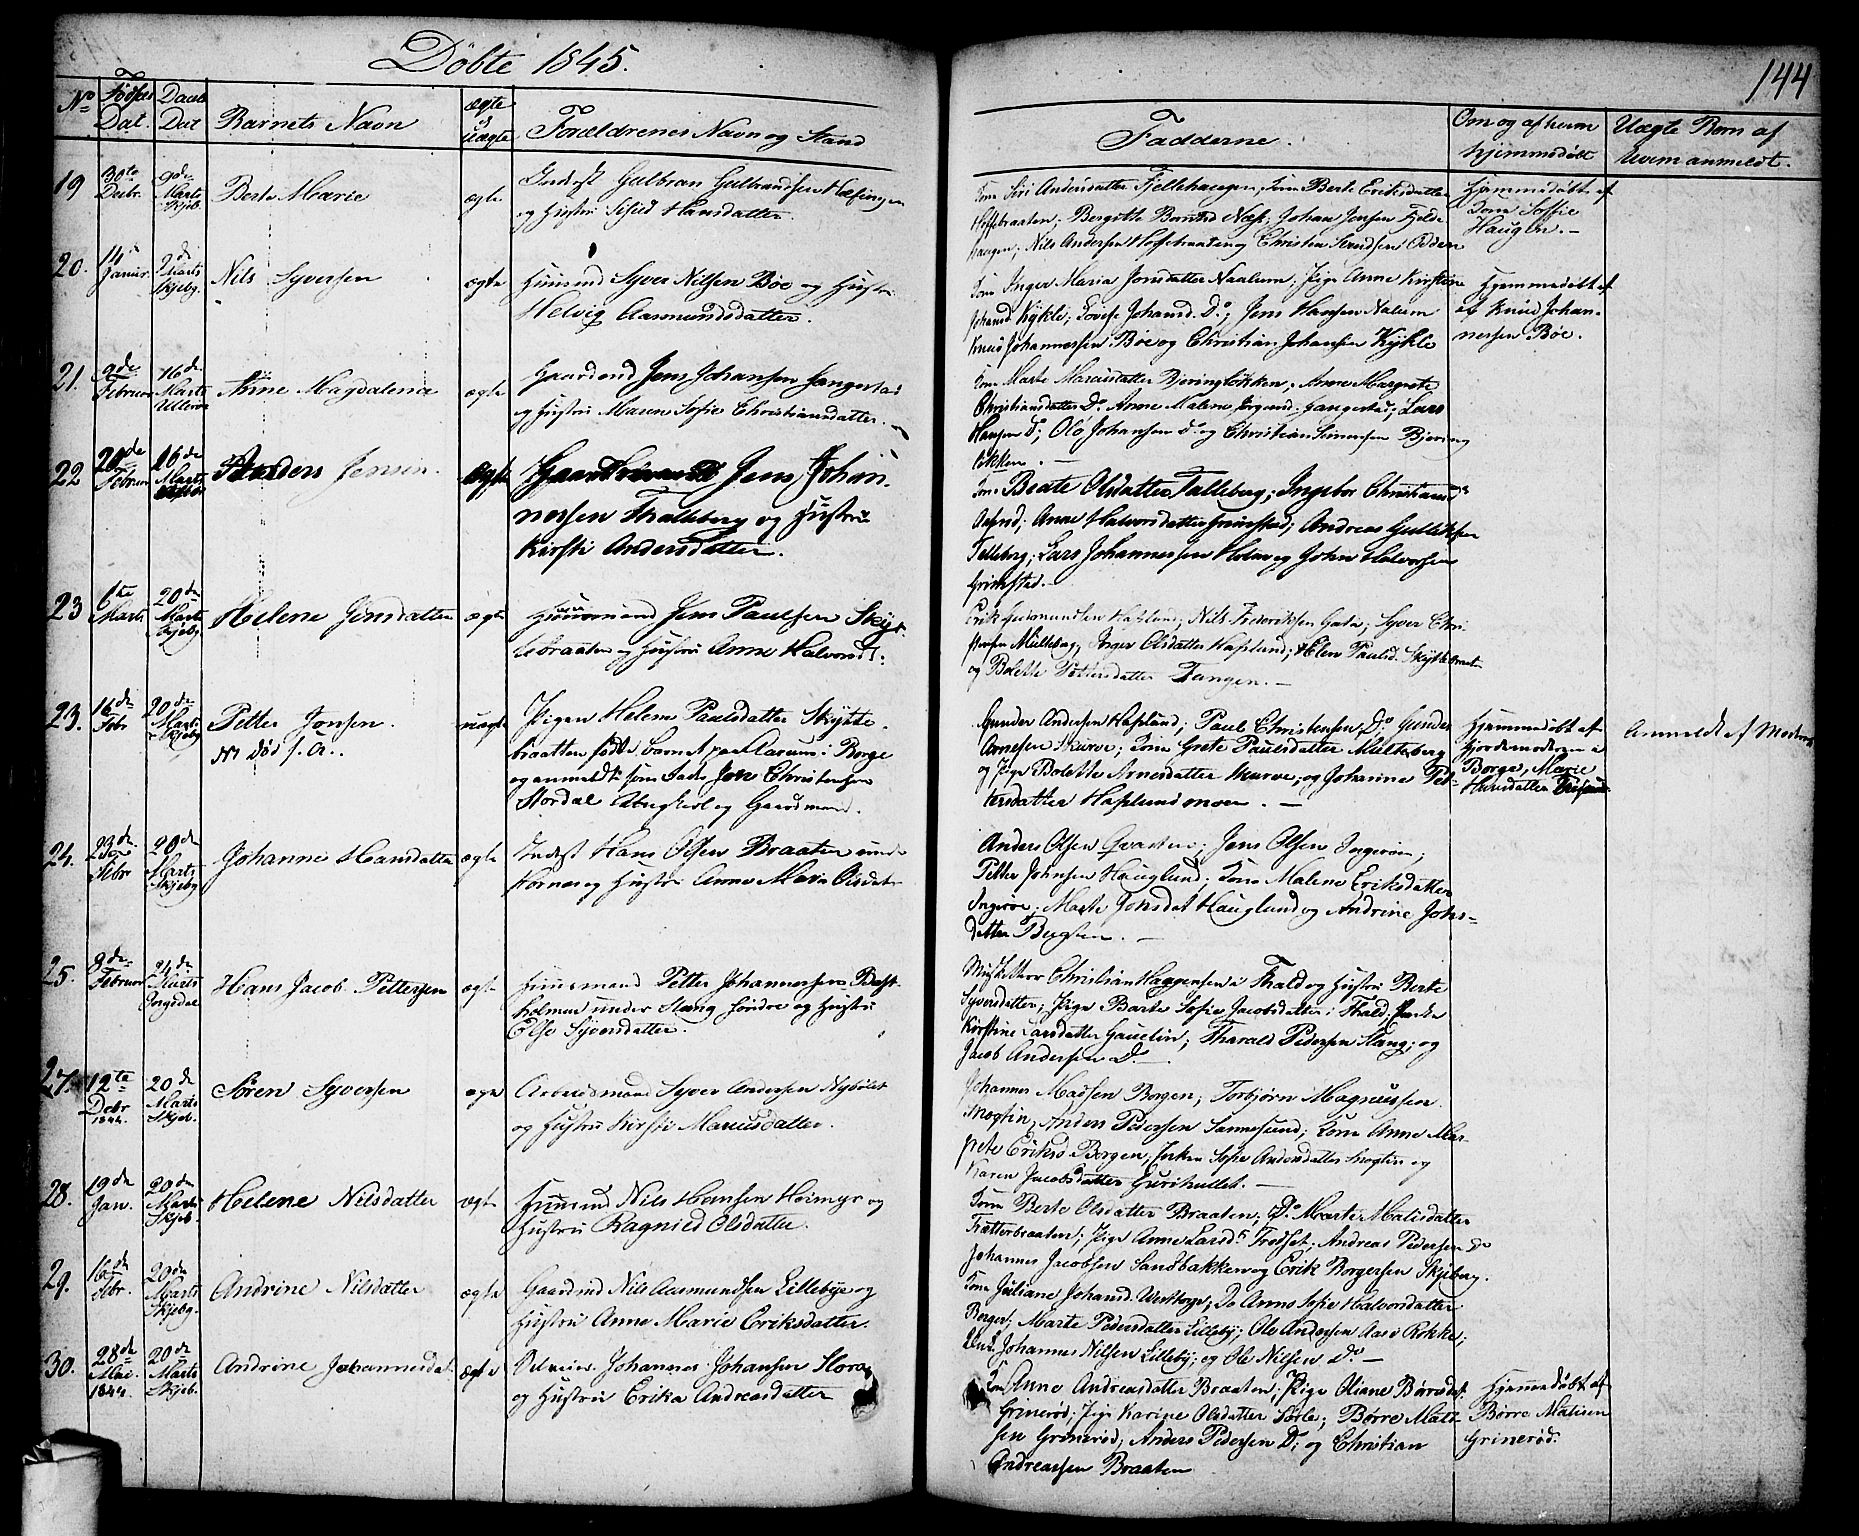 Döbte 1845.
144
No
Födsels Dat.
Daabs Dat
Barnets Navn
ægte o uægte
Forældrenes Navn og Stand
Fadderne.
Om og af hvem hjemmedöbt
Uægte Börn af hvem anmeldt.
19
30te Decbr.
9de Marts Skjeb.
Berte Marie
ægte
Inderst Gulbran Gulbrandsen
og Hustri Hansdatter.
Kone Siri Andersdatter Fjellehaugen, Kone Berte Eriksdatter
Hoffsbraaten; Bergitte Næss; Johan Jensen Fjelle
haugen; Nils Andersen Hoffsbraaten og Christen
Hjemmedöbt af
Kone Soffie
Haugen.-
20.
Januar.
Marts Skjebg.
Nils Syversen
ægte
Huusmd Syver Nilsen Böe og Hustri
Helvig Aasmundsdatter.
Kone Inger Maria Jonsdatter Naalum; Pige Anne Kirstine
Johansd. Kykle; Lovise Johansd. Do; Jens Hansen Nalum
Knud Johannessen Böe og Christian Johansen Kykle
Hjemmedöbt af
af Knud Johan-
nessen Böe.
21.
9de Februar
16de Marts Ulleröe
Anne Magdalena
ægte
Gaardmd Jens Johansen Hangestad
og Hustri Maren Sofie Christiansdatter.
Kone Marte Mariusdatter Bjeringlökken; Anne Margrete
Christiansdatter Do. Anne Malene Jörgensd. Hangestad; Lars
Hansen Do; Ole Johansen Do. og Christian Simensen Bjering
lökken.-
22
20de Februar
16de Marts
Anders Jensen.
ægte
Jens Johan-
nessen Thalleberg og Hustrue
Kirsti Andersdatter.
Kone Beate Olsdatter Talleberg; Ingebor Christiansd.
Anne Halvorsdatter Grimstad; Andreas Gulliksen
Talleberg; Lars Johannessen Holm og John Halvorsen
Grimstad.-
23
1te Marts
20de Marts Skjebg.
Helene Jensdatter
ægte
Huusmand Jens Paulsen Skyt-
tebraaten og Hustri Anne Halvorsd.:
Erik Gudmundsen Hafslund; Nils Frederiksen Gata; Syver Chri-
stensen Mulleberg, Inger Olsdatter Hafslund; Helene Paulsd. Skyttebraaten
og Bolette Pettersdatter Tangen.-
23.
16de Febr
20de Marts Skjebg.
Petter Jonsen.
NB död f. A..
uægte
Pigen Helene Paulsdatter Skytte-
braatten födte barnet paa Aarum i Borge
og anmeldte som Fader Jon Christensen
Stordal Ungkarl og Gaardmand.
Gunder Andersen Hafslund; Paul Christensen Do; Gunder
Arnesen Skurve; Kone Grete Paulsdatter Mulleberg
og Pige Bolette Arnesdatter Skurve; og Johanne Pet-
tersdatter Hafslundmoen.-
Hjemmedöbt af
Gjordemoderen i
Borge, Marie
Hansdatter
Anmeldt af Moderen
24.
23de Febr
20de Marts Skjebg
Johanne Hansdatter
ægte
Inderst Hans Olsen Braaten under
Kornes og Hustri Anne Maria Olsdat-
Anders Olsen Qvasten; Jens Olsen Ingeröe;
Petter Johnsen Hauglund. Kone Malene Eriksdatter
Ingeröe; Marte Jonsdat. Hauglund og Andrine Johns-
datter Bugten.-
25.
8de Februar
24de Marts Ingedal
Hans Jacob Pettersen
ægte
Huusmand Petter Johannessen Bast-
holmen under Stang Söndre og Hustri
Else Syversdatter.
Musketteer Christian Haagensen i Thald og Hustri Berte
Syversdatter; Pige Berte Sofie Jacobsdatter i Thald Enke
Kirstine Larsdatter Gauslin; Tharald Pedersen Stang; og
Jacob Andersen Do.-
27.
12te Debr 1844
20de Marts Skjeb.
Sören Syversen
ægte
Arbeidsmand Syver Andersen Nyböle
og Hustri Kirsti Mariusdatter.
Johannes Madsen Borgen; Torbjörn Magnussen
Moglin; Anders Pedersen Sannesund; Kone Anne Mar-
grete Eriksd. Borgen; Pigen Sofie Andersdatter Moglin og
Karen Jacobsdatter Gurihullet.-
28.
19de Jan.
20de Marts Skjeb.
Helene Nilsdatter
ægte
Huusmd Nils Hansen Heimyr og
Hustri Ragnild Olsdatter.
Kone Berte Olsdatter Braaten; Do Marte Matisdatter
Trætterbraaten; Pige Anne Larsd. Trodset; Andreas Pedersen Do
Johannes Jacobsen Sandbakken og Erik Borgersen Skjeberg.
29.
16de Febr.
20de Marts Skjebg.
Andrine Nilsdatter
ægte
Gaardmd Nils Aasmundsen Lillebye og
Hustri Anne Marie Eriksdatter.
Kone Juliane Johansd. Westberge; Do Anne Sofie Halvorsdatter
Berger; Marte Pedersdatter Lilleby; Ole Andersen Aas i Rokke;
Johannes Nilsen Lilleby; og Ole Nilsen Do.-
30.
28de Mai. 1844
20de Marts Skjeb.
Andrine Johannesdat.
ægte
Selveier Johannes Johansen
og Hustri Erika Andreasdatter
Kone Anne Andreasdatter Braaten; Pige Oliane Börresdat.
Grineröd; Pige Karine Olsdatter Sörle; Börre Mati-
sen Grineröd; Anders Pedersen Do; og Christian
Andreassen Braaten
Hjemmedöbt af
Börre Matisen
Grineröd.